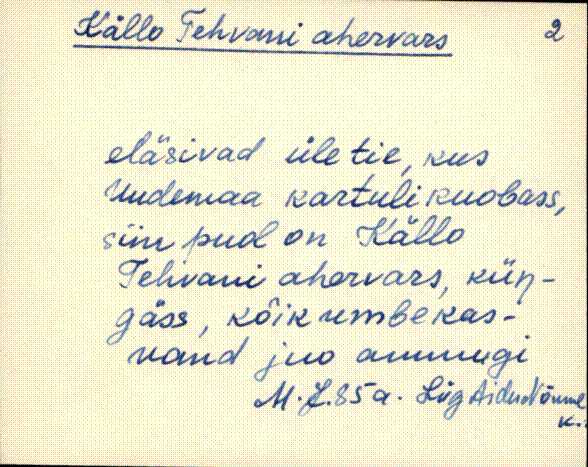 Källo Tehvani ahervars 2
eläsivad üle tie, kus
Uudemaa kartulikuobass,
siin pud on Källo
Tehvani ahervars, kün-
gäss, kõik umbekas-
vand juo ammugi
M. J. 85 a. Lüg Aidu Nõmme
k.